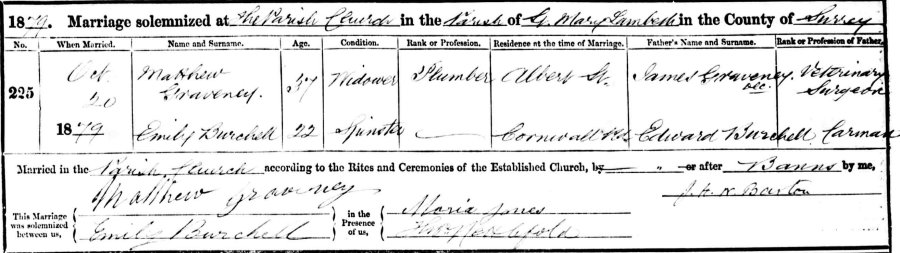 1879. Marriage solemnized at The Parish Church in the Parish of St. Mary Lambeth in the County of Surrey
No. When Married. Name and Surname. Age. Condition. Rank or Profession. Residence at the time of Marriage. Father's Name and Surname. Rank or Profession of Father.
225 Oct. 20 1879
Matthew Graveney. 37 Widower Plumber Albert St. James Graveney dec. Veterinary Surgeon
Emily Burchell 22 Spinster — Cornwall Rd. Edward Burchell Carman
Married in the Parish Church according to the Rites and Ceremonies of the Established Church, by — " — or after Banns by me,
Matthew Graveney
This Marriage was solemnized between us,
Emily Burchell
in the Presence of us,
Maria Jones
J. H. N. Barton